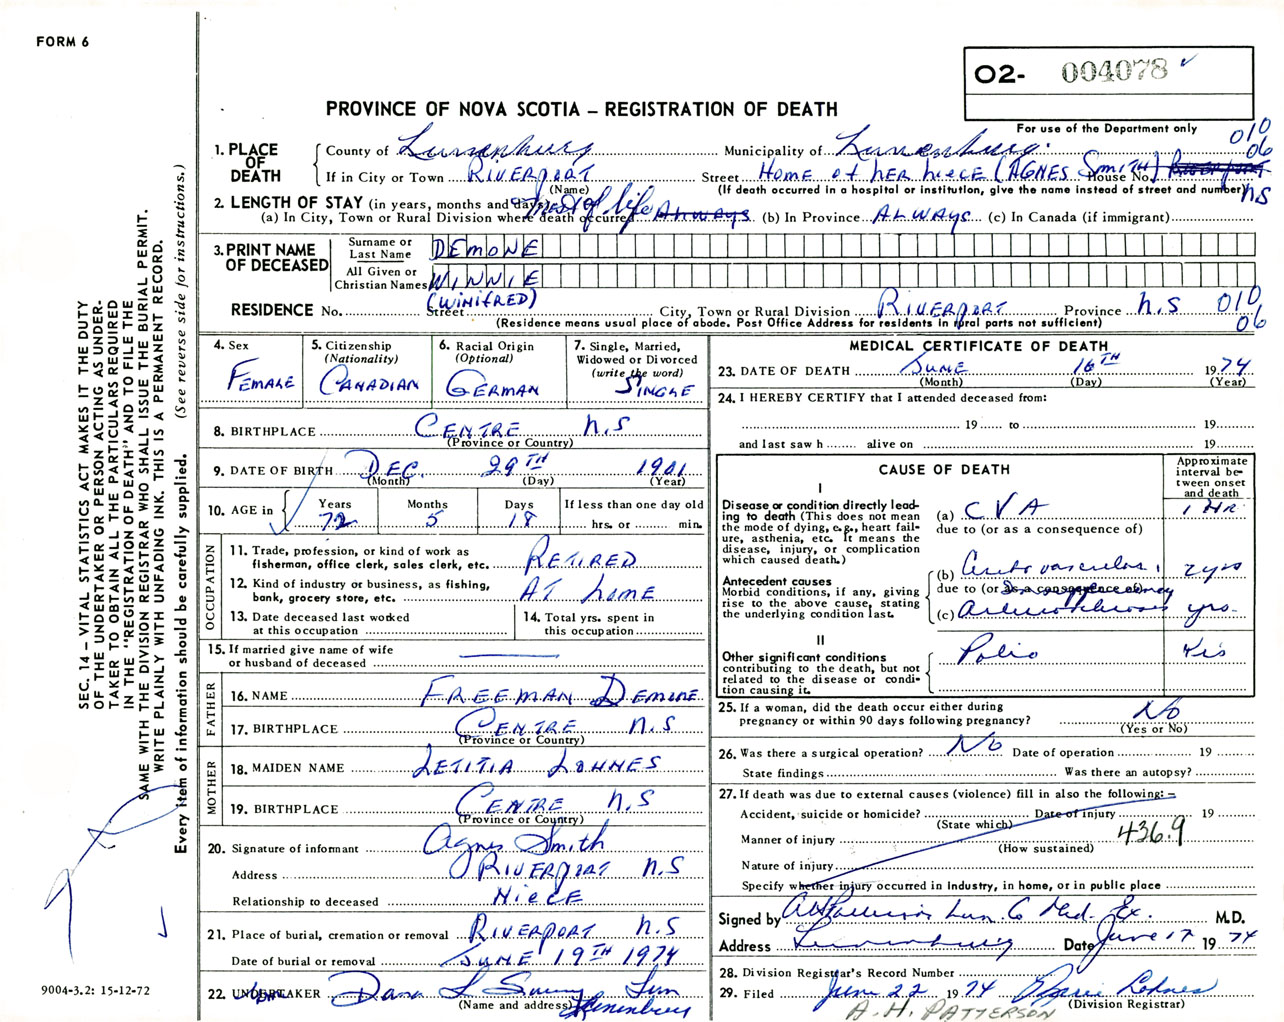 FORM 6
O2- 004078
PROVINCE OF NOVA SCOTIA – REGISTRATION OF DEATH
For use of the Department only
010
06
1. PLACE OF DEATH
County of Lunenburg Municipality of Lunenburg
If in City or Town RIVERPORT Street HOME of HER NIECE (AGNES SMITH) House No. RIVERPORT
(Name) (If death occurred in a hospital or institution, give the name instead of street and number)
N.S
2. LENGTH OF STAY (in years, months and days)
(a) In City, Town or Rural Division where death occurred of life ALWAYS (b) In Province ALWAYS (c) In Canada (if immigrant)
3. PRINT NAME OF DECEASED
Surname or Last Name DEMONE
All Given or Christian Names WINNIE
(WINIFRED)
RESIDENCE No. Street City, Town or Rural Division RIVERPORT Province N.S 010
06
(Residence means usual place of abode. Post Office Address for residents in rural parts not sufficient)
4. Sex
FEMALE
5. Citizenship
(Nationality)
CANADIAN
6. Racial Origin
(Optional)
GERMAN
7. Single, Married, Widowed or Divorced
(write the word)
SINGLE
8. BIRTHPLACE CENTRE N.S
(Province or Country)
9. DATE OF BIRTH DEC. 29TH 1901
(Month) (Day) (Year)
10. AGE in
Years Months Days If less than one day old
72 5 18 hrs. or min.
OCCUPATION
11. Trade, profession, or kind of work as
fisherman, office clerk, sales clerk, etc. RETIRED
12. Kind of industry or business, as fishing,
bank, grocery store, etc. AT HOME
13. Date deceased last worked
at this occupation
14. Total yrs. spent in
this occupation
15. If married give name of wife
or husband of deceased
FATHER
16. NAME FREEMAN DEMONE
17. BIRTHPLACE CENTRE N.S
(Province or Country)
MOTHER
18. MAIDEN NAME LETITIA LOHNES
19. BIRTHPLACE CENTRE N.S
(Province or Country)
20. Signature of informant Agnes Smith
Address RIVERPORT N.S
Relationship to deceased NIECE
21. Place of burial, cremation or removal RIVERPORT N.S
Date of burial or removal JUNE 19TH 1974
22. UNDERTAKER Dana L Lun
(Name and address) Lunenburg
MEDICAL CERTIFICATE OF DEATH
23. DATE OF DEATH JUNE 16TH 1974
(Month) (Day) (Year)
24. I HEREBY CERTIFY that I attended deceased from:
19 to 19
and last saw h alive on 19
CAUSE OF DEATH
Approximate interval between onset and death
I
Disease or condition directly leading to death (This does not mean the mode of dying, e.g., heart failure, asthenia, etc. It means the disease, injury, or complication which caused death.)
(a) CVA 1 HR
due to (or as a consequence of)
Antecedent causes
Morbid conditions, if any, giving rise to the above cause, stating the underlying condition last.
(b) 2yrs
due to (or as a consequence of)
(c) Arteriosclerosis yrs.
II
Other significant conditions
contributing to the death, but not related to the disease or condition causing it.
Polio
25. If a woman, did the death occur either during
pregnancy or within 90 days following pregnancy? No
(Yes or No)
26. Was there a surgical operation? No Date of operation 19
State findings Was there an autopsy?
27. If death was due to external causes (violence) fill in also the following: –
Accident, suicide or homicide? Date of injury 19
(State which)
Manner of injury 436.9
(How sustained)
Nature of injury
Specify whether injury occurred in Industry, in home, or in public place
Signed by Lun. Co Med. Ex. M.D.
Address Lunenburg Date June 17 1974
28. Division Registrar's Record Number
29. Filed June 22 1974 Lohnes
(Division Registrar)
A.H. PATTERSON
SEC. 14 – VITAL STATISTICS ACT MAKES IT THE DUTY
OF THE UNDERTAKER OR PERSON ACTING AS UNDER-
TAKER TO OBTAIN ALL THE PARTICULARS REQUIRED
IN THE "REGISTRATION OF DEATH" AND TO FILE THE
SAME WITH THE DIVISION REGISTRAR WHO SHALL ISSUE THE BURIAL PERMIT.
WRITE PLAINLY WITH UNFADING INK. THIS IS A PERMANENT RECORD.
Every item of information should be carefully supplied. (See reverse side for instructions.)
9004-3.2: 15-12-72